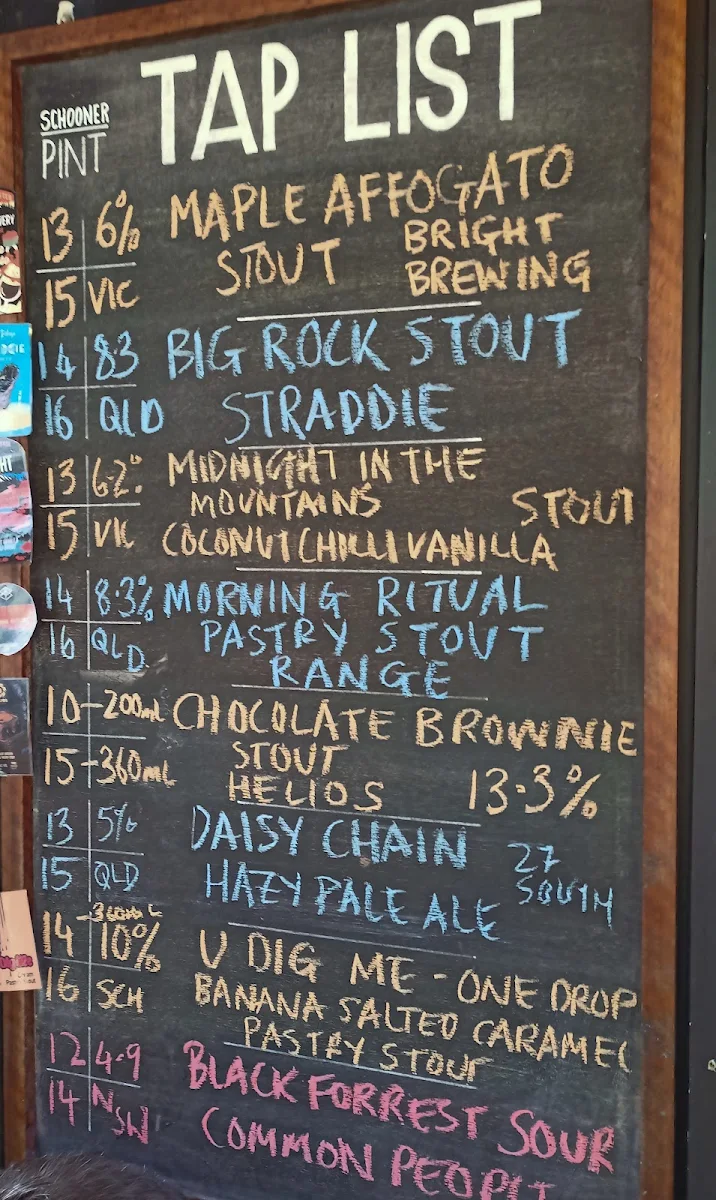 TAP LIST
SCHOONER
PINT
13 6% MAPLE AFFOGATO
15 VIC STOUT BRIGHT
BREWING
14 83 BIG ROCK STOUT
16 QLD STRADDIE
13 6.2% MIDNIGHT IN THE
MOUNTAINS STOUT
15 VIC COCONUT CHILLI VANILLA
14 8.3% MORNING RITUAL
16 QLD PASTRY STOUT
RANGE
10-200mL CHOCOLATE BROWNIE
15-360mL STOUT
HELIOS 13.3%
13 5% DAISY CHAIN 27
15 QLD HAZY PALE ALE SOUTH
14-360mL 10% U DIG ME - ONE DROP
16 SCH BANANA SALTED CARAMEL
PASTRY STOUT
12 4.9 BLACK FORREST SOUR
14 NSW COMMON PEOPLE